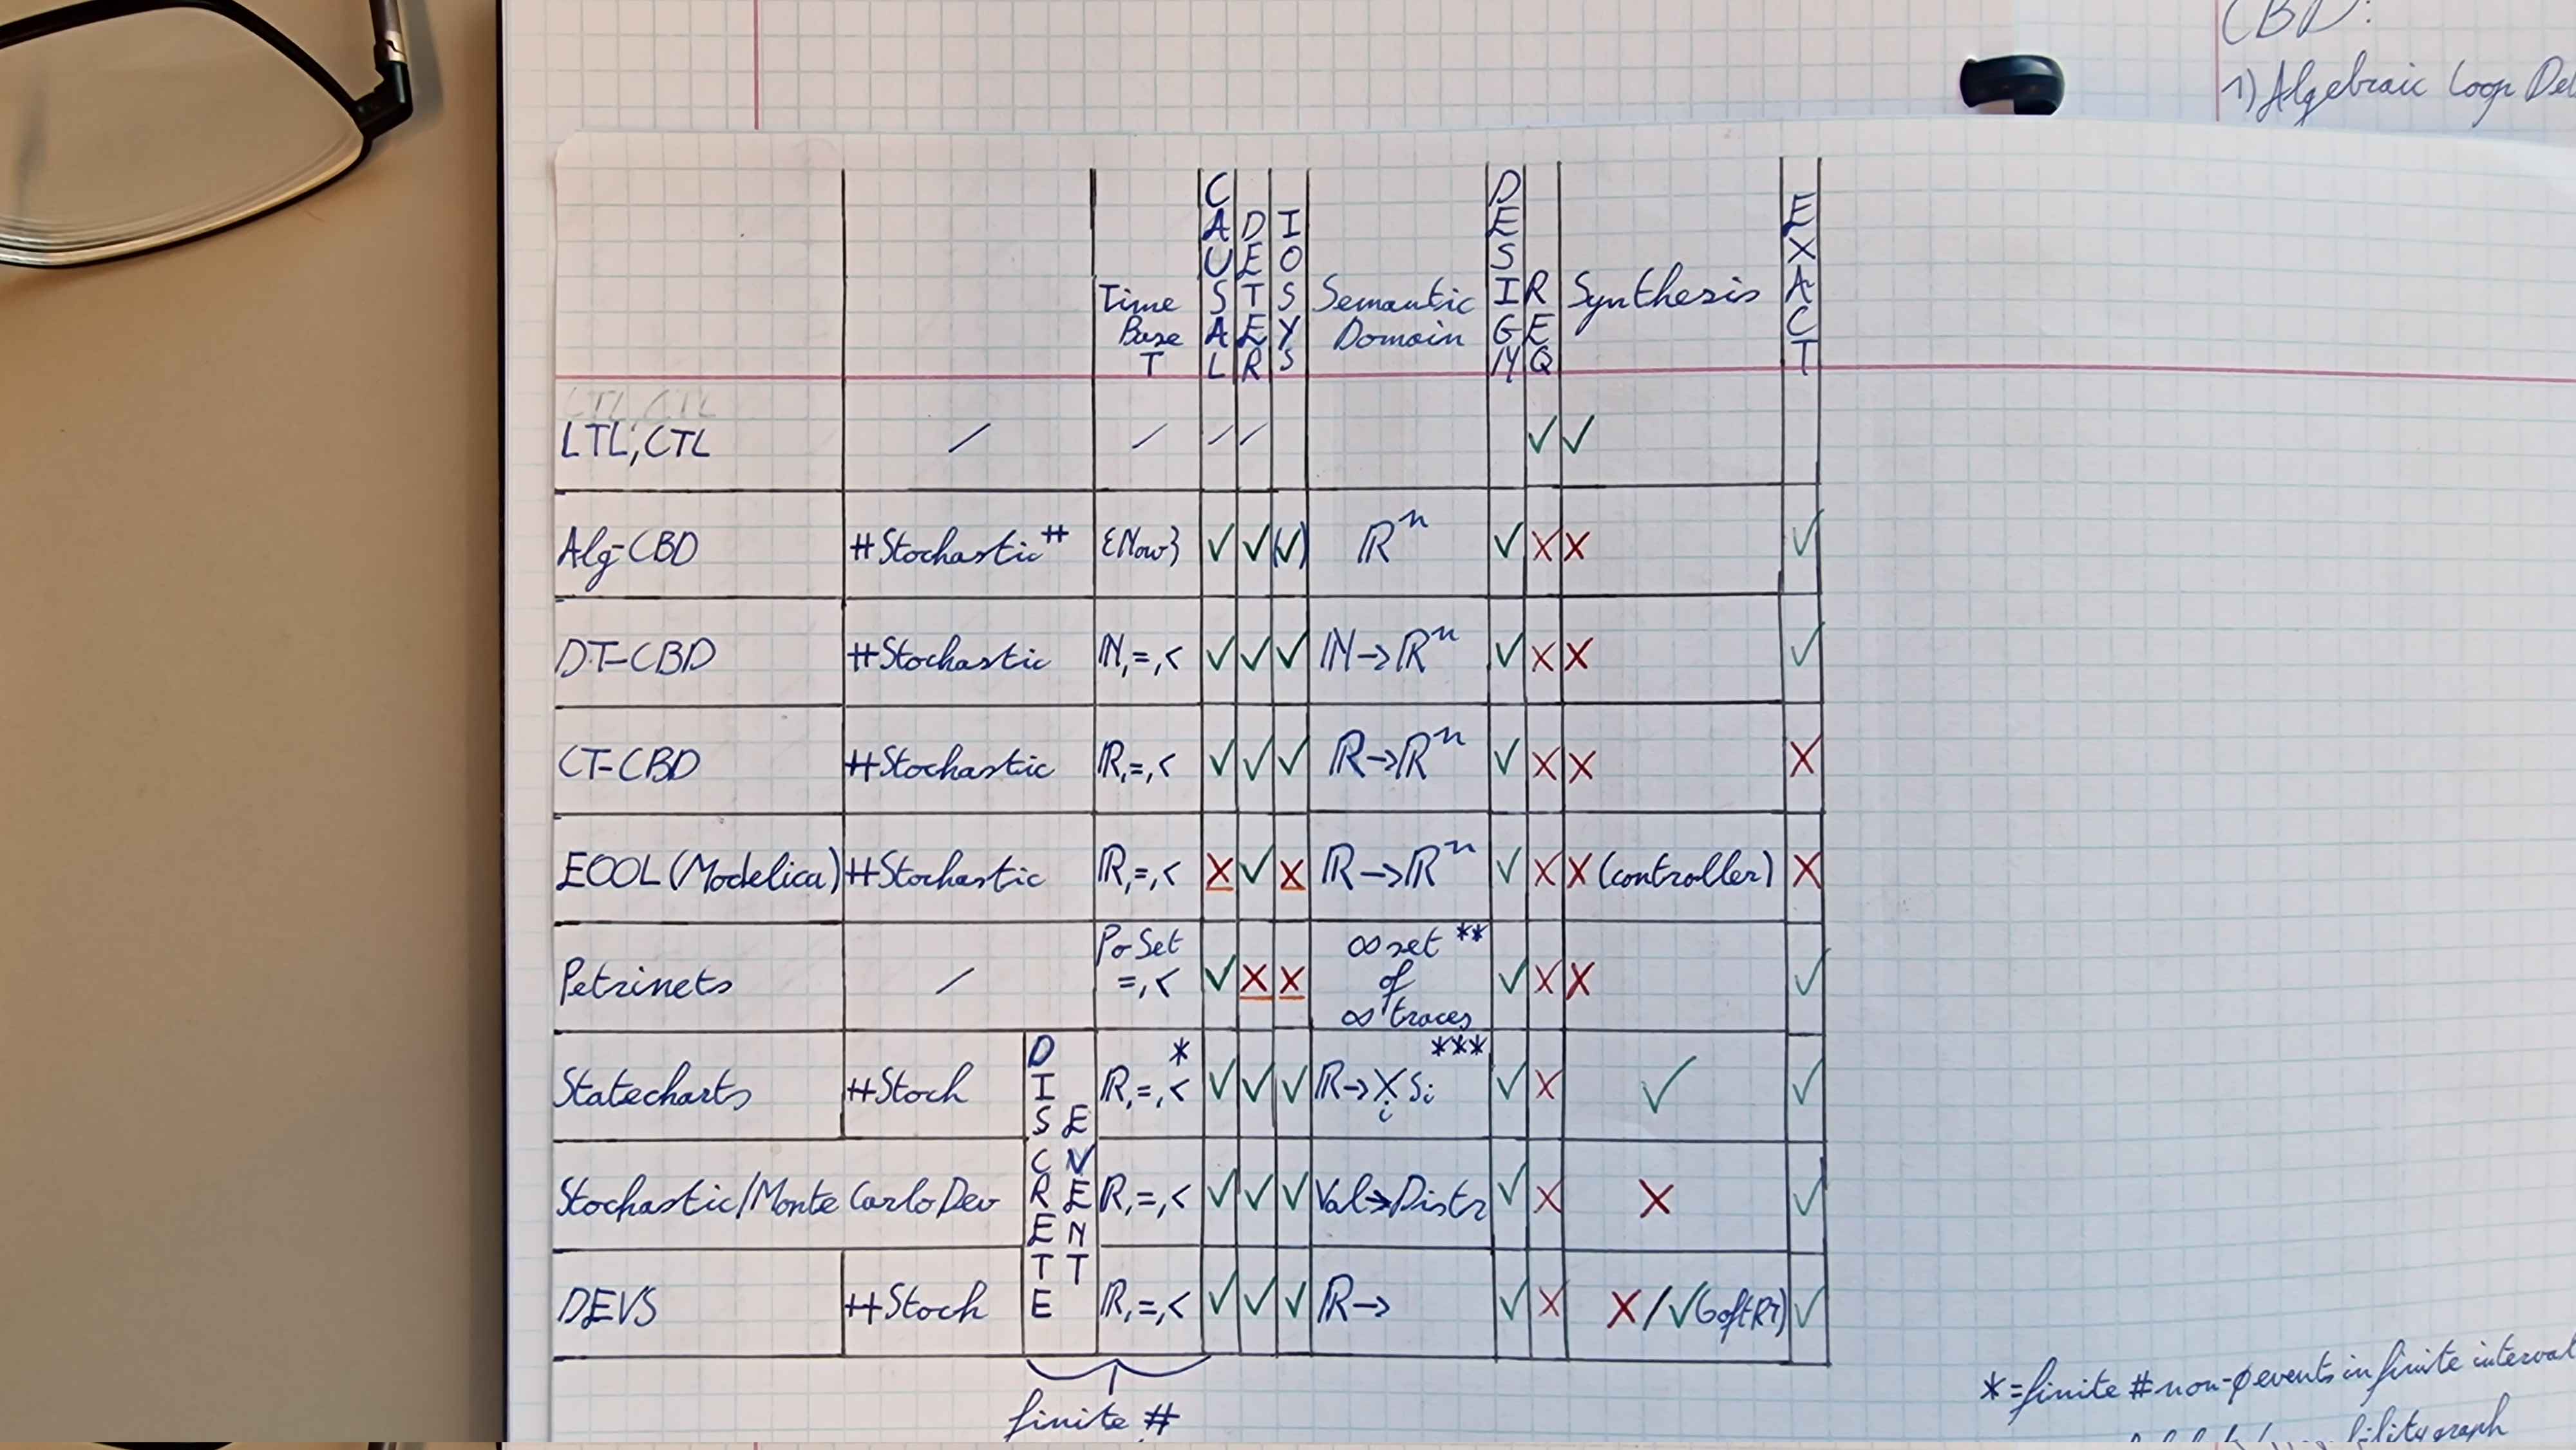 CBD:
1) Algebraic Loop Det
Time Base T | CAUSAL | DETER | IOSYS | Semantic Domain | DESIGN | REQ | Synthesis | EXACT
LTL, CTL
LTL, CTL | / | / | / | / | | | | ✓ | ✓ |
Alg-CBD | #Stochastic# | {Now} | ✓ | ✓ | (✓) | ℝⁿ | ✓ | X | X | ✓
DT-CBD | #Stochastic | ℕ,=,< | ✓ | ✓ | ✓ | ℕ→ℝⁿ | ✓ | X | X | ✓
CT-CBD | #Stochastic | ℝ,=,< | ✓ | ✓ | ✓ | ℝ→ℝⁿ | ✓ | X | X | X
EOOL (Modelica) | #Stochastic | ℝ,=,< | X | ✓ | X | ℝ→ℝⁿ | ✓ | X | X (controller) | X
Petrinets | / | PoSet =,< | ✓ | X | X | ∞ set ** of ∞ traces | ✓ | X | X | ✓
DISCRETE EVENT
Statecharts | #Stoch | ℝ,=,< * | ✓ | ✓ | ✓ | ℝ→X Si i *** | ✓ | X | ✓ | ✓
Stochastic/Monte Carlo Dev | ℝ,=,< | ✓ | ✓ | ✓ | Val→Distr | ✓ | X | X | ✓
DEVS | #Stoch | ℝ,=,< | ✓ | ✓ | ✓ | ℝ→ | ✓ | X | X/✓(SoftRT) | ✓
finite #
*=finite # non-φ events in finite interval
graph